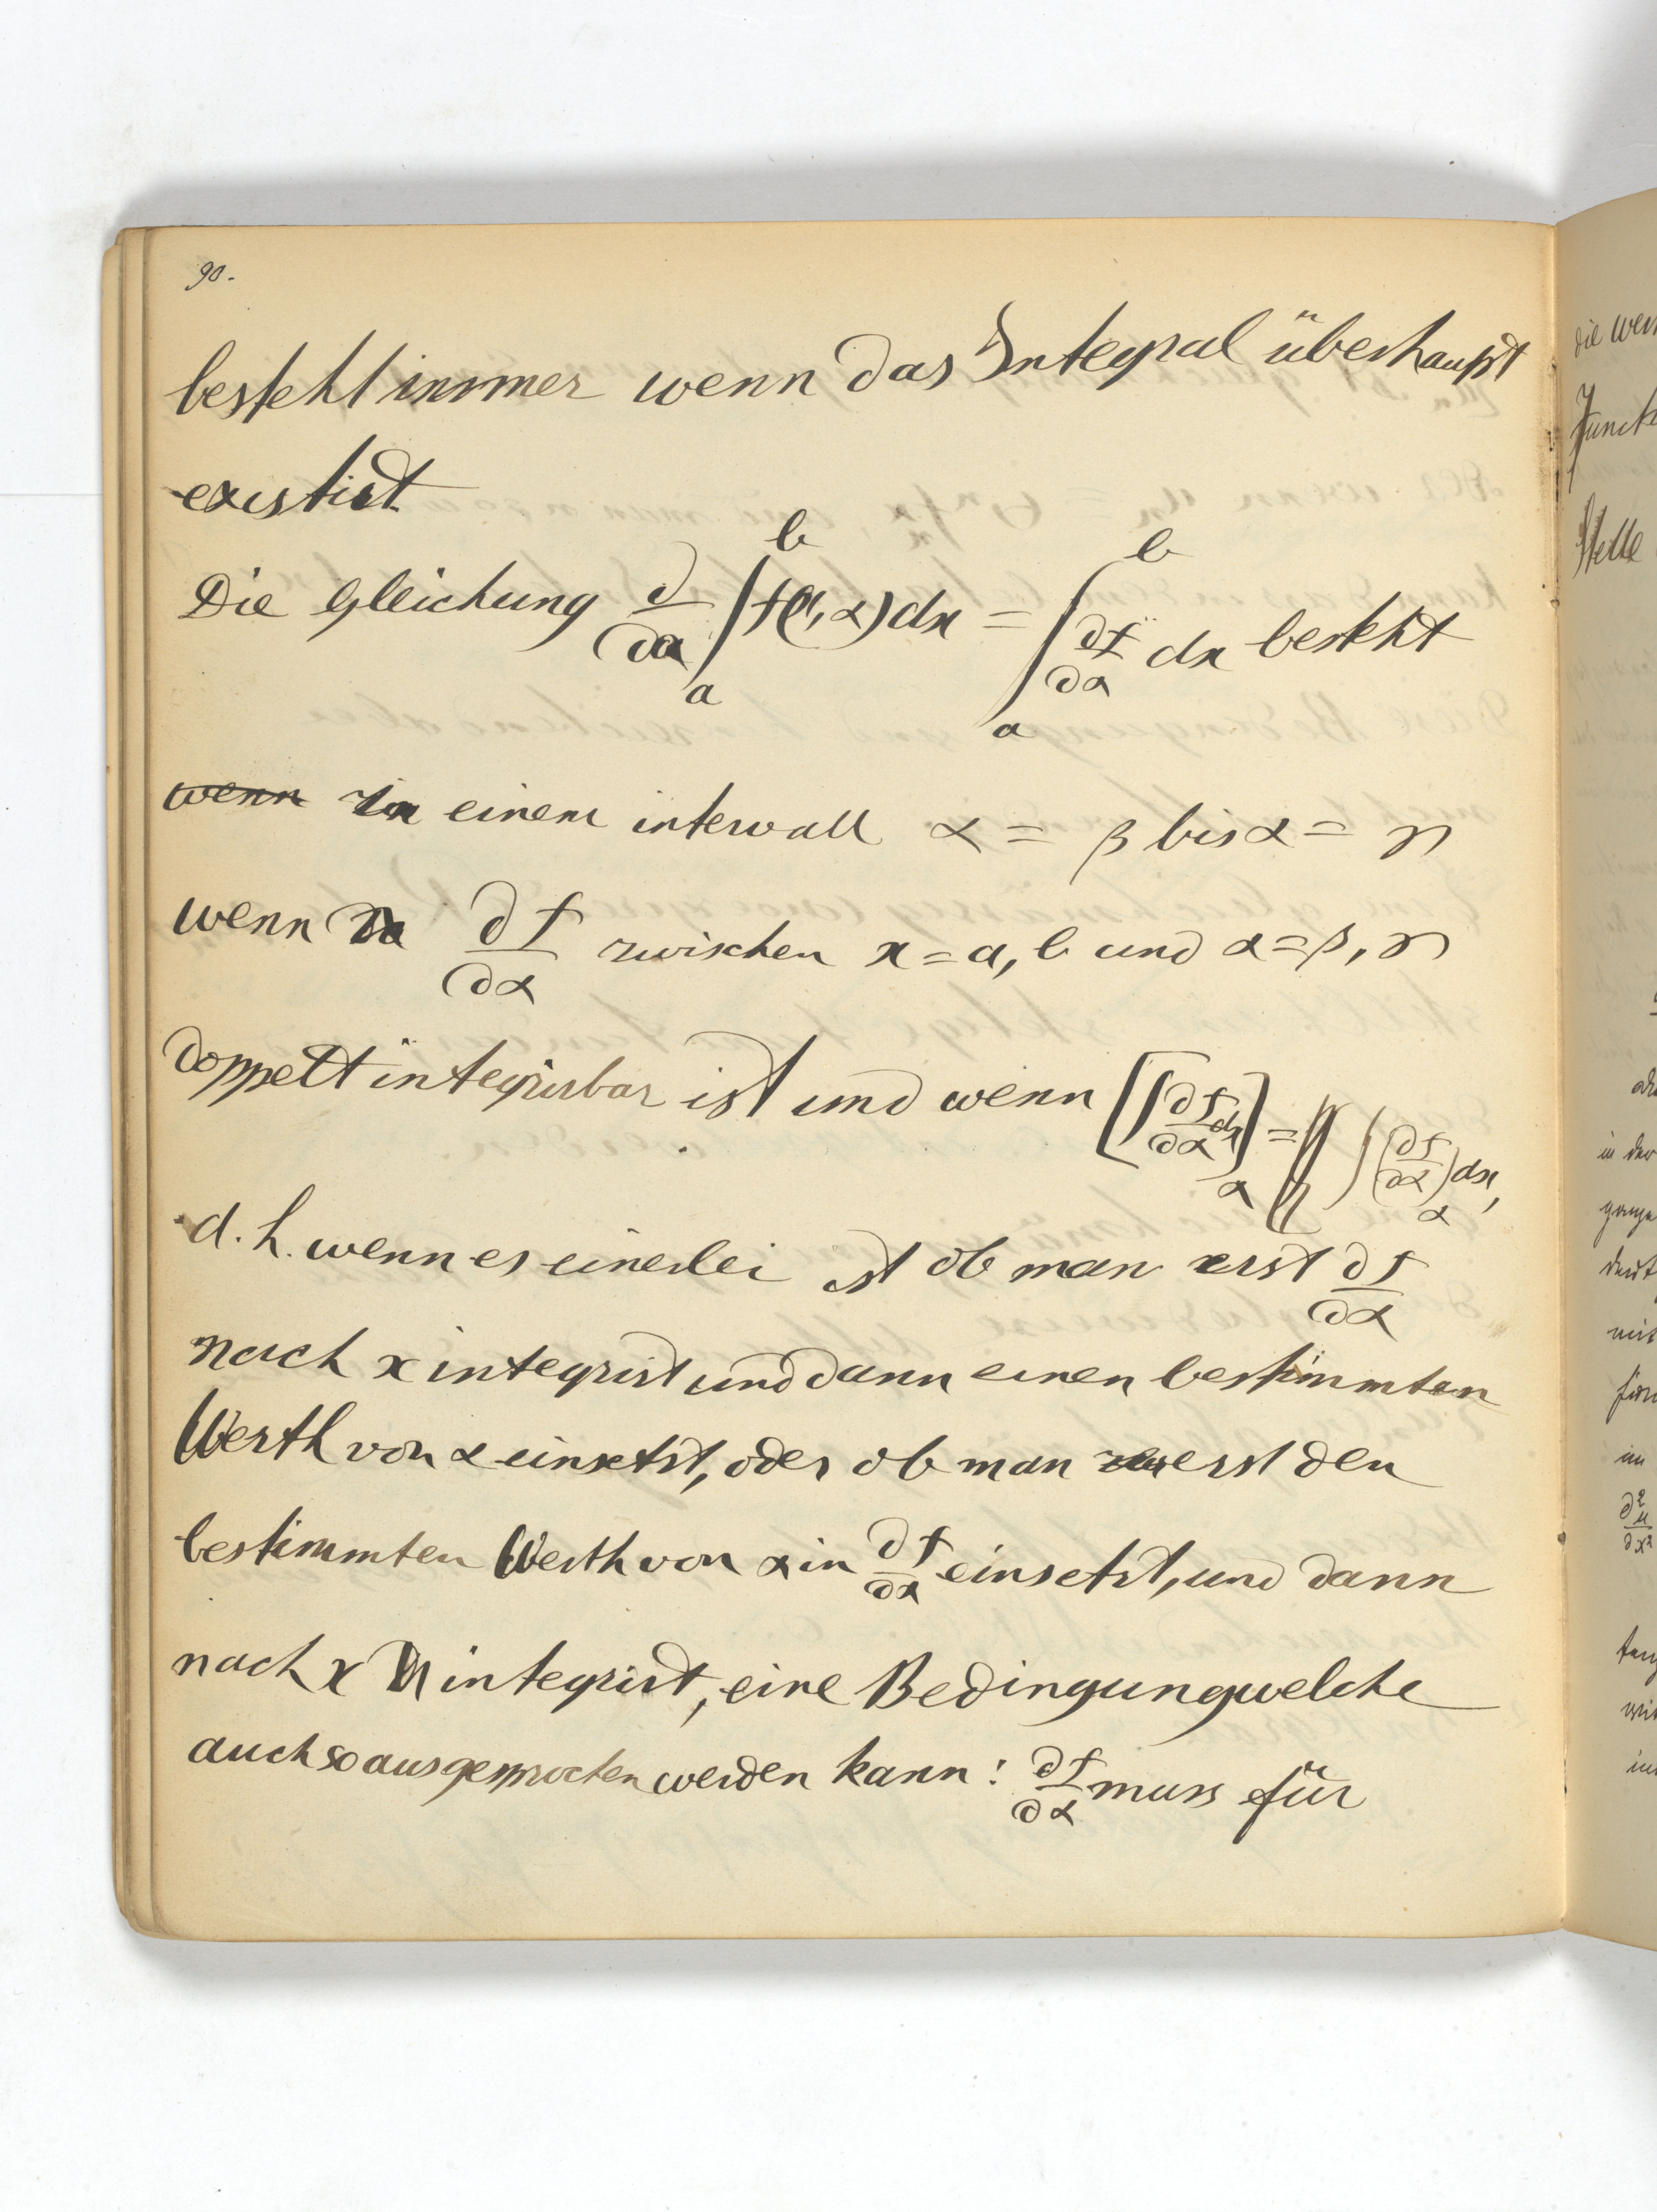 90.
besteht immer wenn das Integral überhaupt
existirt
Die Gleichung ∂/∂α ∫_a^b f(x, α) dx = ∫_a^b ∂f/∂α dx besteht
wenn in einem intervall α = β bis α = γ
wenn ∂f/∂α zwischen x = a, b und α = β, γ
doppelt integrirbar ist und wenn [∫ ∂f/∂α dx]_α = ∫ (∂f/∂α)_α dx,
d. h. wenn es einerlei ist ob man erst ∂f/∂α
nach x integrirt und dann einen bestimmten
Werth von α einsetzt, oder ob man erst den
bestimmten Werth von α in ∂f/∂α einsetzt, und dann
nach x integrirt, eine Bedingung welche
auch so ausgesprochen werden kann: ∂f/∂α muss für
die
Funct
Stelle
in der
mit
∂²u/∂x²